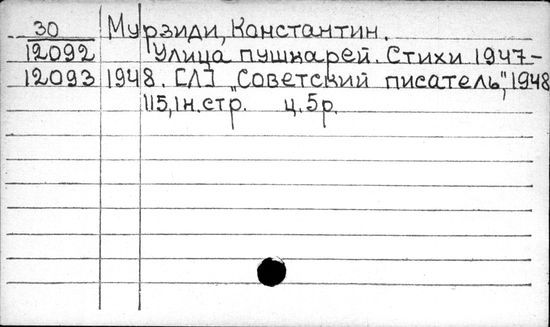 30 Мурзиди, Константин.
12092 Улица пушкарей. Стихи 1947-
12093 1948. [Л] „Советский писатель", 1948
115, 1н.стр. ц. 5р.